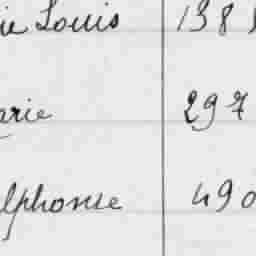 ie Louis 138
arie 297
lphonse 490